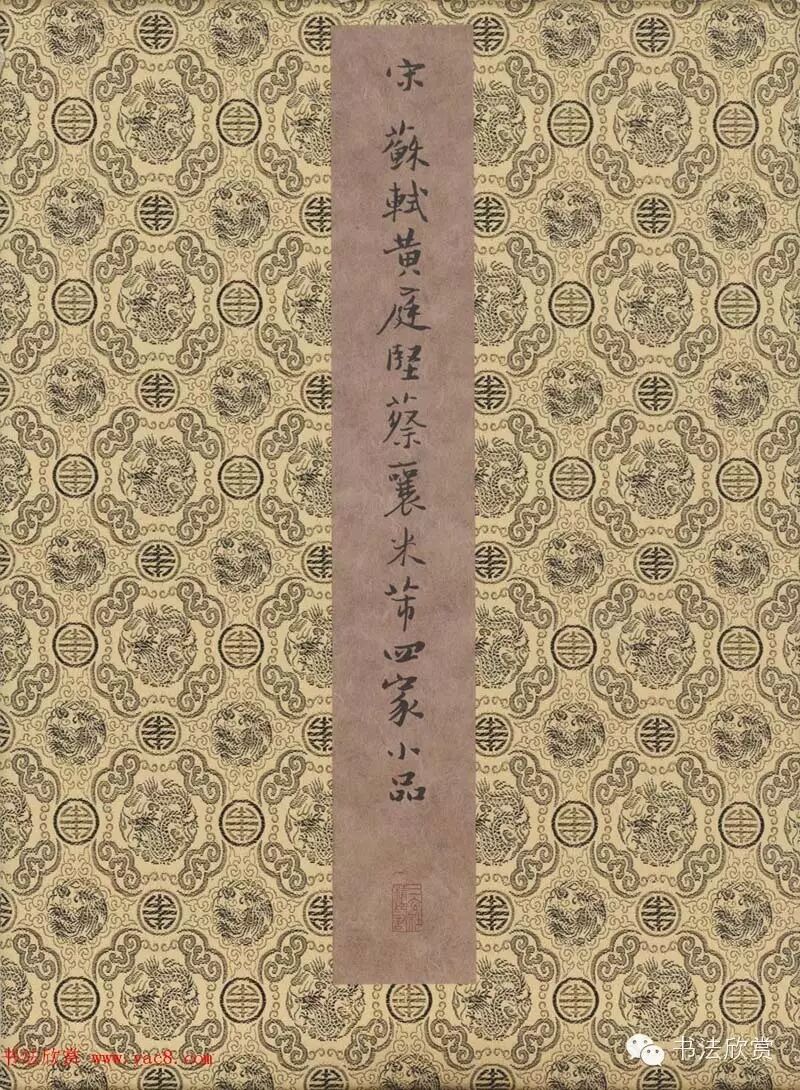 宋 蘇軾黃庭堅蔡襄米芾四家小品
书法欣赏 www.yac8.com
书法欣赏